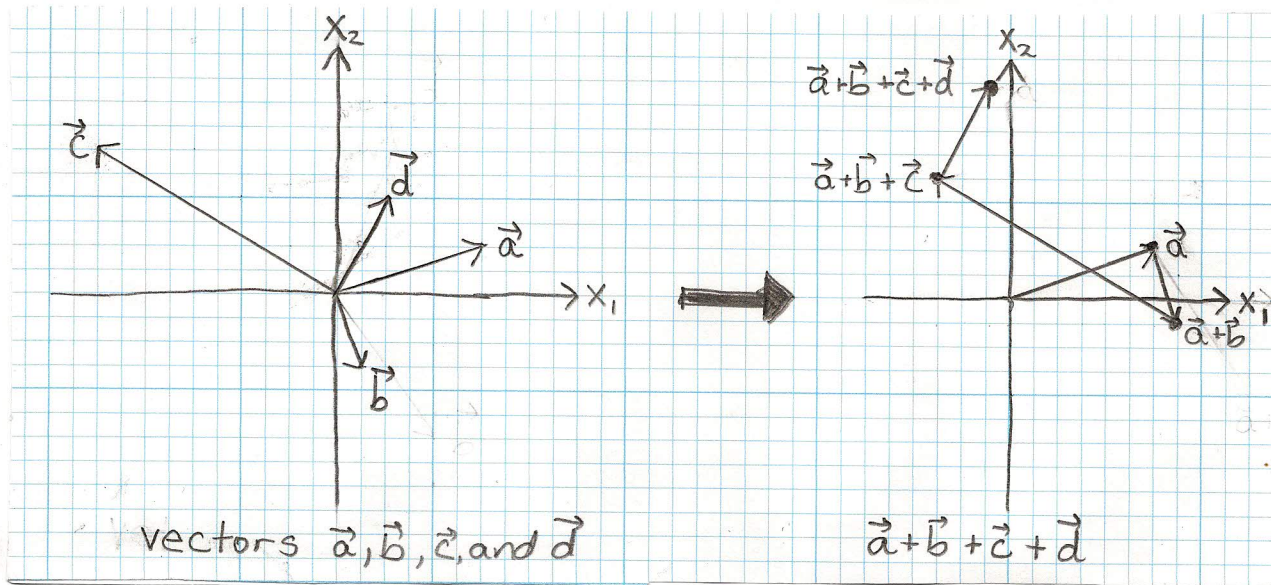 X₂
c⃗
d⃗
a⃗
X₁
b⃗
vectors a⃗, b⃗, c⃗, and d⃗
X₂
a⃗+b⃗+c⃗+d⃗
a⃗+b⃗+c⃗
a⃗
X₁
a⃗+b⃗
a⃗+b⃗+c⃗+d⃗